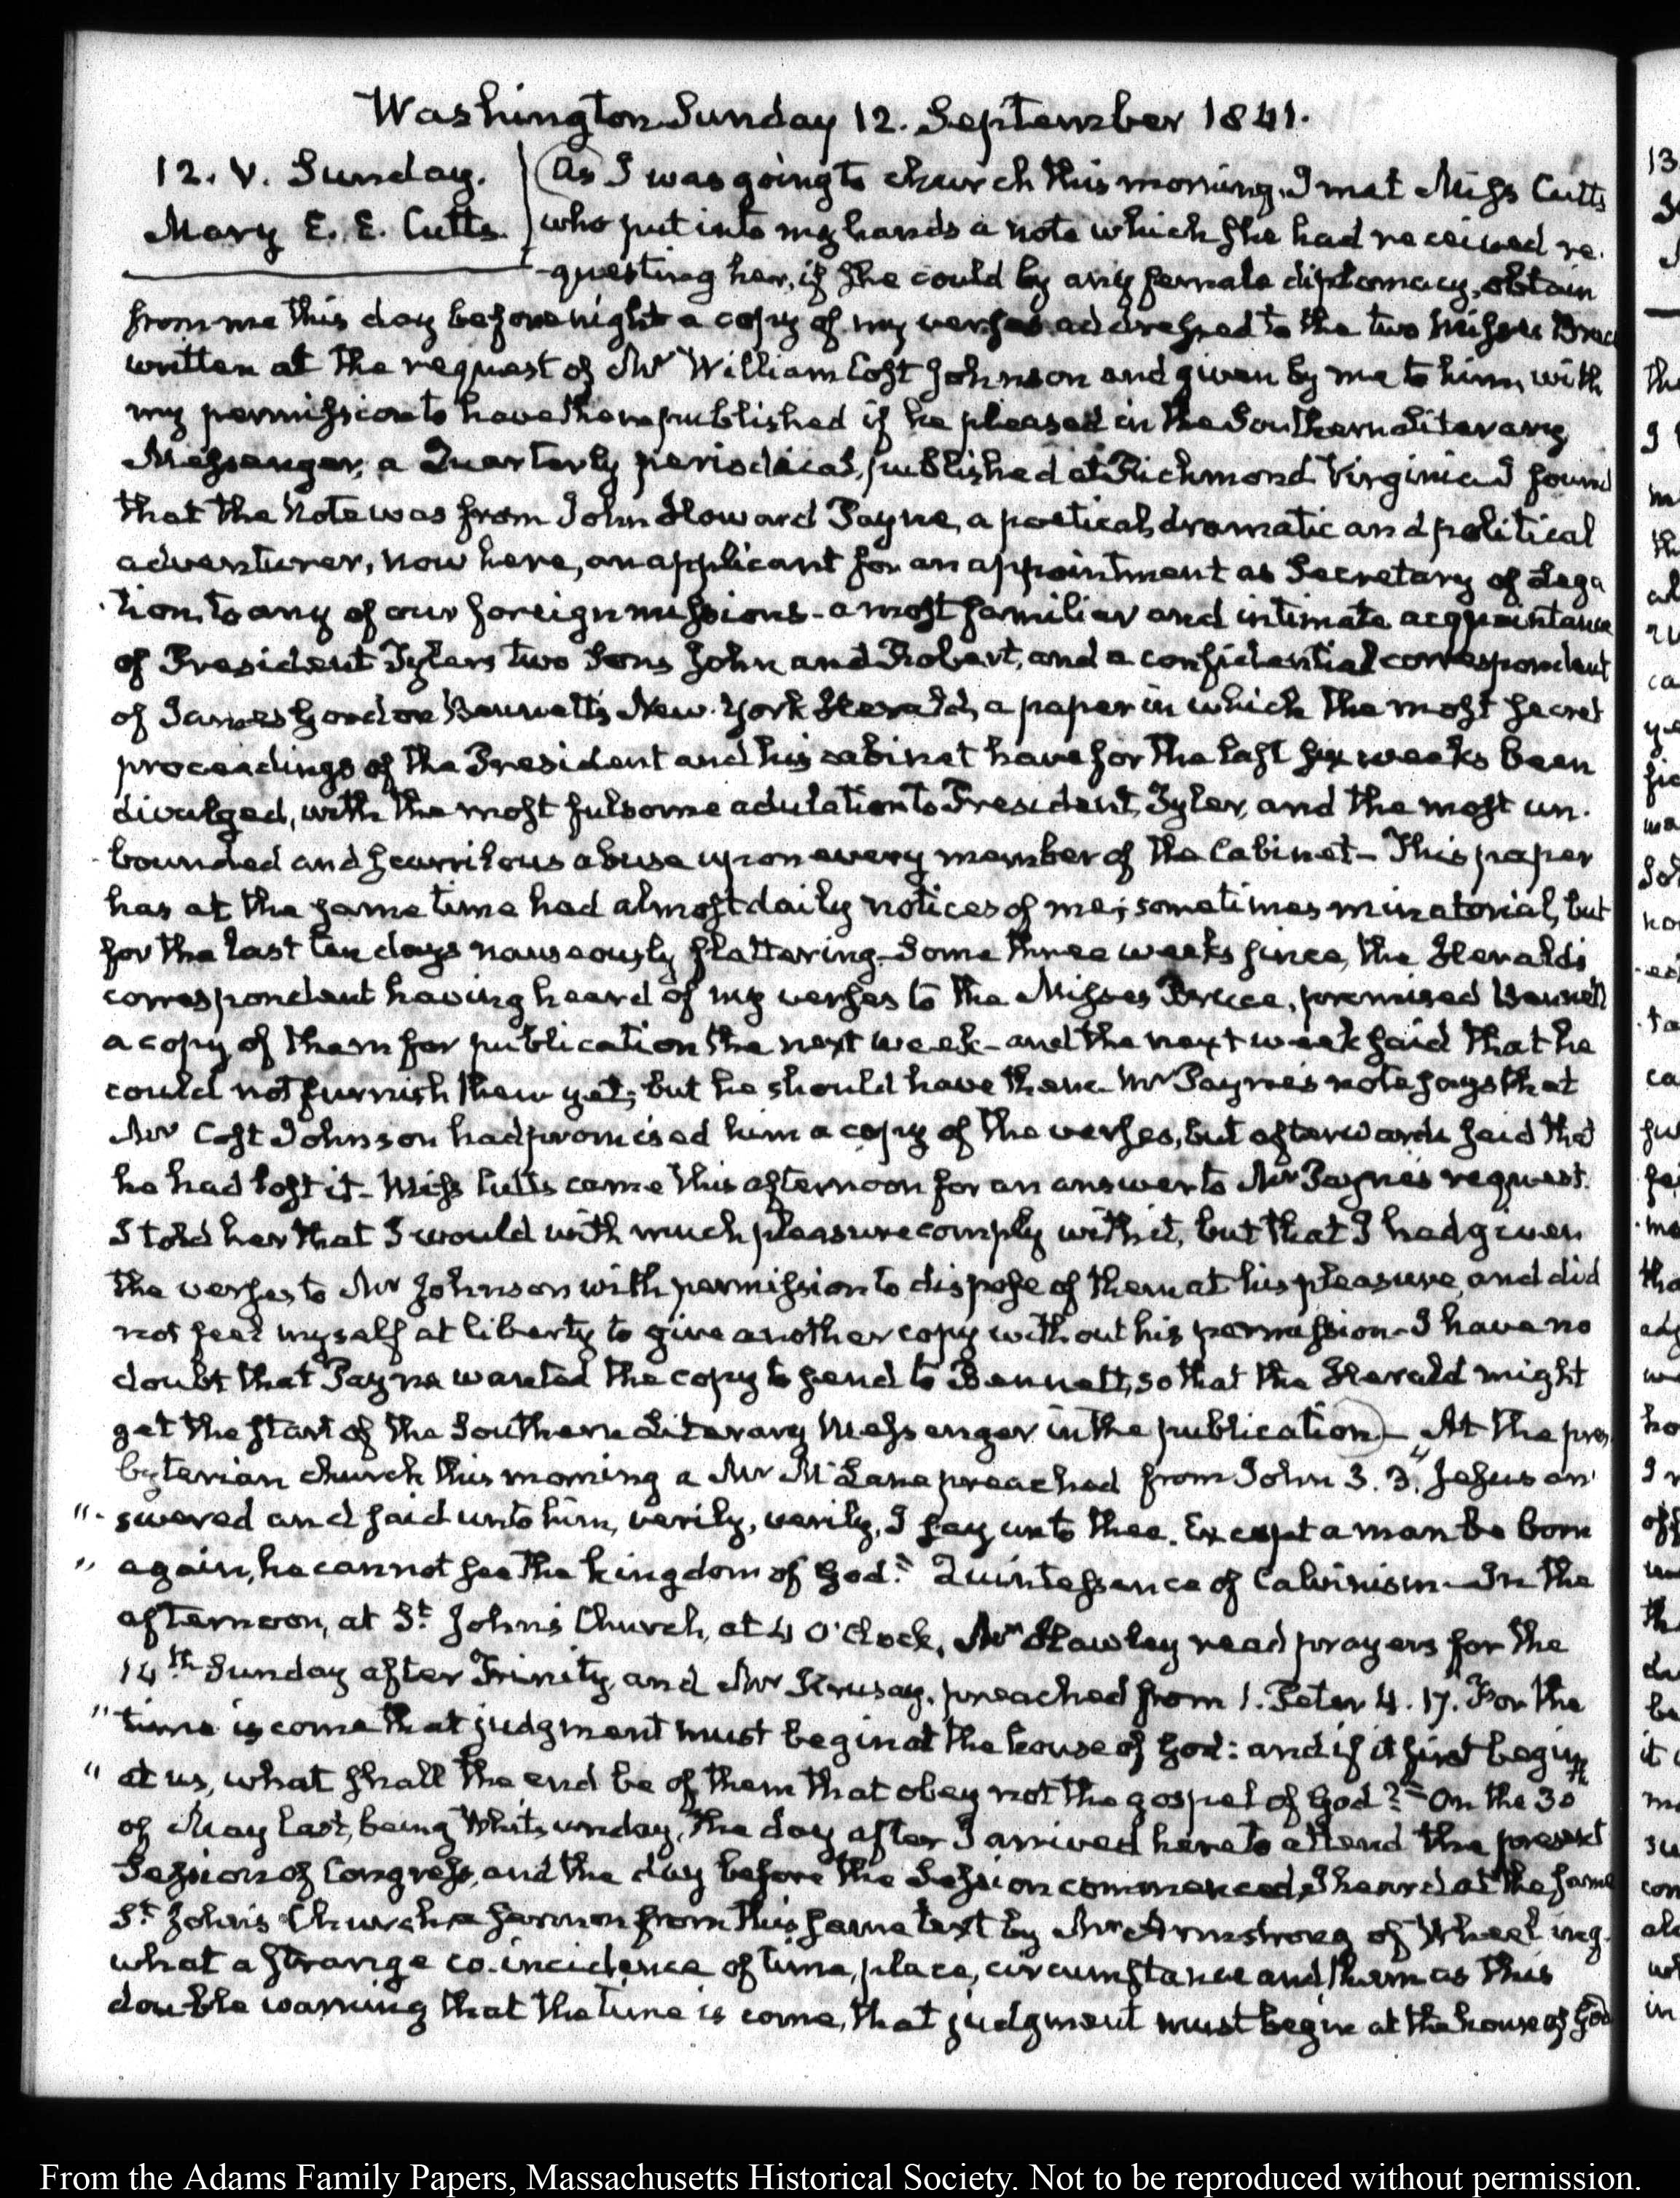 Washington Sunday 12. September 1841.
12. V. Sunday.
Mary E. E. Cutts.
As I was going to church this morning, I met Miss Cutts
who put into my hands a note which she had received re-
-questing her, if she could by any female diplomacy, obtain
from me this day before night a copy of my verses addressed to the two Misses
written at the request of Mr William Cost Johnson and given by me to him, with
my permission to have them published if he pleased in the Southern Literary
Messenger, a Quarterly periodical, published at Richmond Virginia I found
that the Note was from John Howard Payne, a poetical, dramatic and political
adventurer, now here, an applicant for an appointment as Secretary of Lega
-tion, to any of our foreign missions - a most familiar and intimate acquaintance
of President Tylers two Sons John and Robert, and a confidential correspondent
of James Gordon Bennett's New-York Herald, a paper in which the most secret
proceedings of the President and his cabinet have for the last six weeks been
divulged, with the most fulsome adulation to President Tyler, and the most un-
-bounded and scurrilous abuse upon every member of the Cabinet - This paper
has at the same time had almost daily notices of me; sometimes minatorial, but
for the last ten days nauseously flattering - Some three weeks since, the Herald's
correspondent having heard of my verses to the Misses Bruce, promised Bennett
a copy of them for publication the next week - and the next week said that he
could not furnish them yet; but he should have them - Mr Payne's note says that
Mr Cost Johnson had promised him a copy of the verses, but afterwards said that
he had lost it - Miss Cutts came this afternoon for an answer to Mr Payne's request.
I told her that I would with much pleasure comply with it, but that I had given
the verses to Mr Johnson with permission to dispose of them at his pleasure, and did
not feel myself at liberty to give another copy without his permission - I have no
doubt that Payne wanted the copy to send to Bennett, so that the Herald might
get the start of the Southern Literary Messenger in the publication - At the pres-
byterian church this morning a Mr McLane preached from John 3. 3. "Jesus an
"-swered and said unto him, verily, verily, I say unto thee. Except a man be born
" again, he cannot see the kingdom of God." Quintessence of Calvinism - In the
afternoon, at St. John's Church, at 4 O'Clock, Mr Hawley read prayers for the
14th Sunday after Trinity, and Mr preached from 1. Peter 4. 17. For the
" time is come that judgment must begin at the house of God: and if it first begin
" at us, what shall the end be of them that obey not the gospel of God?" On the 30th
of May last, being Whitsunday, the day after I arrived here to attend the present
Session of Congress, and the day before the Session commenced, I heard at the same
St. John's Church a sermon from this same text by Mr Armstrong of Wheeling.
what a strange co-incidence of time, place, circumstance and theme as this
double warning that the time is come, that judgment must begin at the house of God